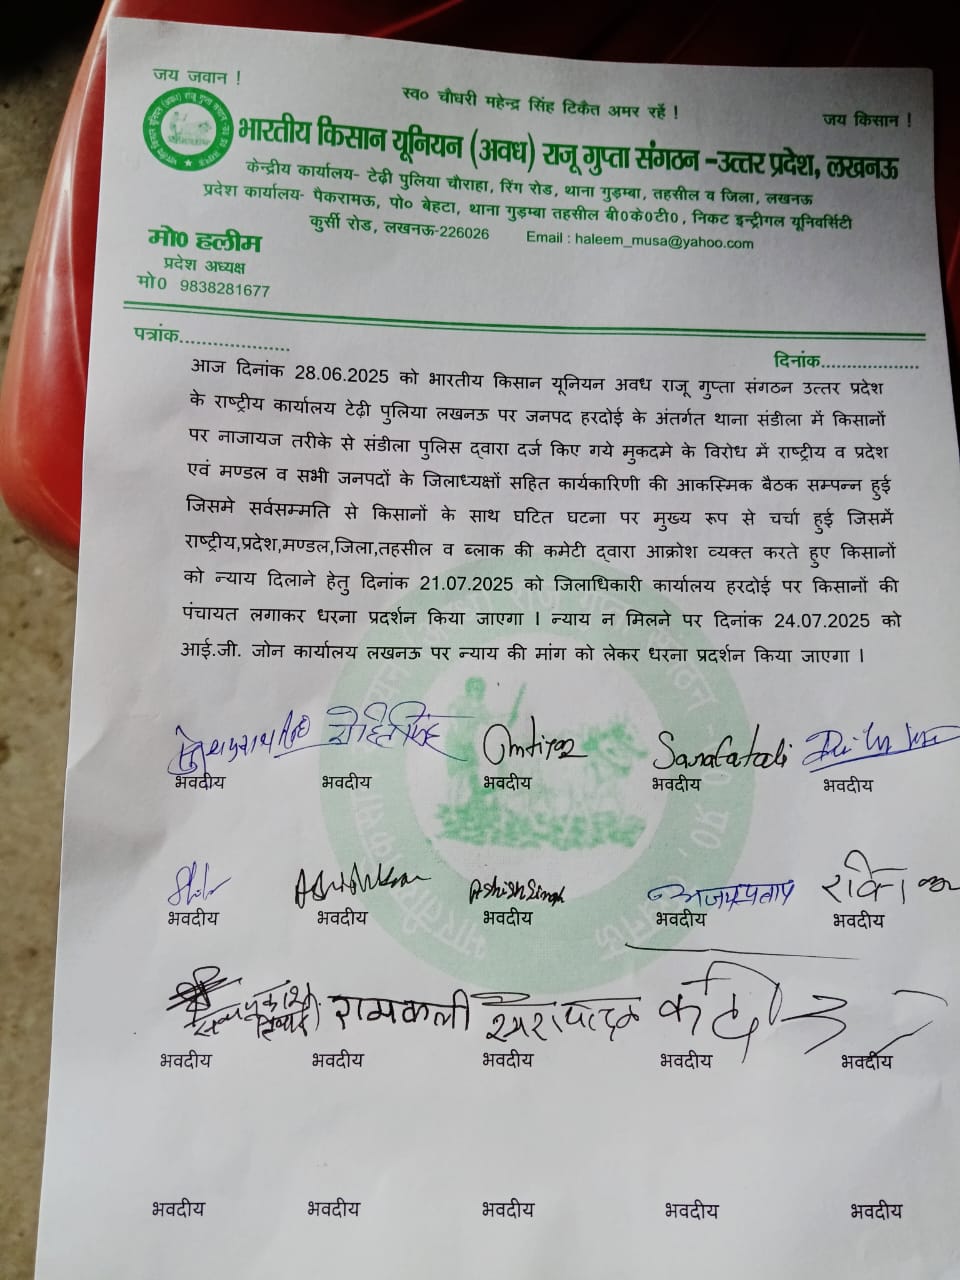 जय जवान !
स्व० चौधरी महेन्द्र सिंह टिकैत अमर रहें !
जय किसान !
भारतीय किसान यूनियन (अवध) राजू गुप्ता संगठन –उत्तर प्रदेश, लखनऊ
केन्द्रीय कार्यालय- टेढ़ी पुलिया चौराहा, रिंग रोड, थाना गुड़म्बा, तहसील व जिला, लखनऊ
प्रदेश कार्यालय- पैकरामऊ, पो० बेहटा, थाना गुड़म्बा तहसील बी०के०टी०, निकट इन्ट्रीगल यूनिवर्सिटी
कुर्सी रोड, लखनऊ-226026 Email : haleem_musa@yahoo.com
मो० हलीम
प्रदेश अध्यक्ष
मो0 9838281677
पत्रांक....................
दिनांक....................
आज दिनांक 28.06.2025 को भारतीय किसान यूनियन अवध राजू गुप्ता संगठन उत्तर प्रदेश
के राष्ट्रीय कार्यालय टेढ़ी पुलिया लखनऊ पर जनपद हरदोई के अंतर्गत थाना संडीला में किसानों
पर नाजायज तरीके से संडीला पुलिस द्वारा दर्ज किए गये मुकदमे के विरोध में राष्ट्रीय व प्रदेश
एवं मण्डल व सभी जनपदों के जिलाध्यक्षों सहित कार्यकारिणी की आकस्मिक बैठक सम्पन्न हुई
जिसमे सर्वसम्मति से किसानों के साथ घटित घटना पर मुख्य रूप से चर्चा हुई जिसमें
राष्ट्रीय,प्रदेश,मण्डल,जिला,तहसील व ब्लाक की कमेटी द्वारा आक्रोश व्यक्त करते हुए किसानों
को न्याय दिलाने हेतु दिनांक 21.07.2025 को जिलाधिकारी कार्यालय हरदोई पर किसानों की
पंचायत लगाकर धरना प्रदर्शन किया जाएगा । न्याय न मिलने पर दिनांक 24.07.2025 को
आई.जी. जोन कार्यालय लखनऊ पर न्याय की मांग को लेकर धरना प्रदर्शन किया जाएगा ।
रोहित सिंह
भवदीय भवदीय भवदीय भवदीय भवदीय
Ashish Singh अजय प्रताप रवि
भवदीय भवदीय भवदीय भवदीय भवदीय
रामकली
भवदीय भवदीय भवदीय भवदीय भवदीय
भवदीय भवदीय भवदीय भवदीय भवदीय